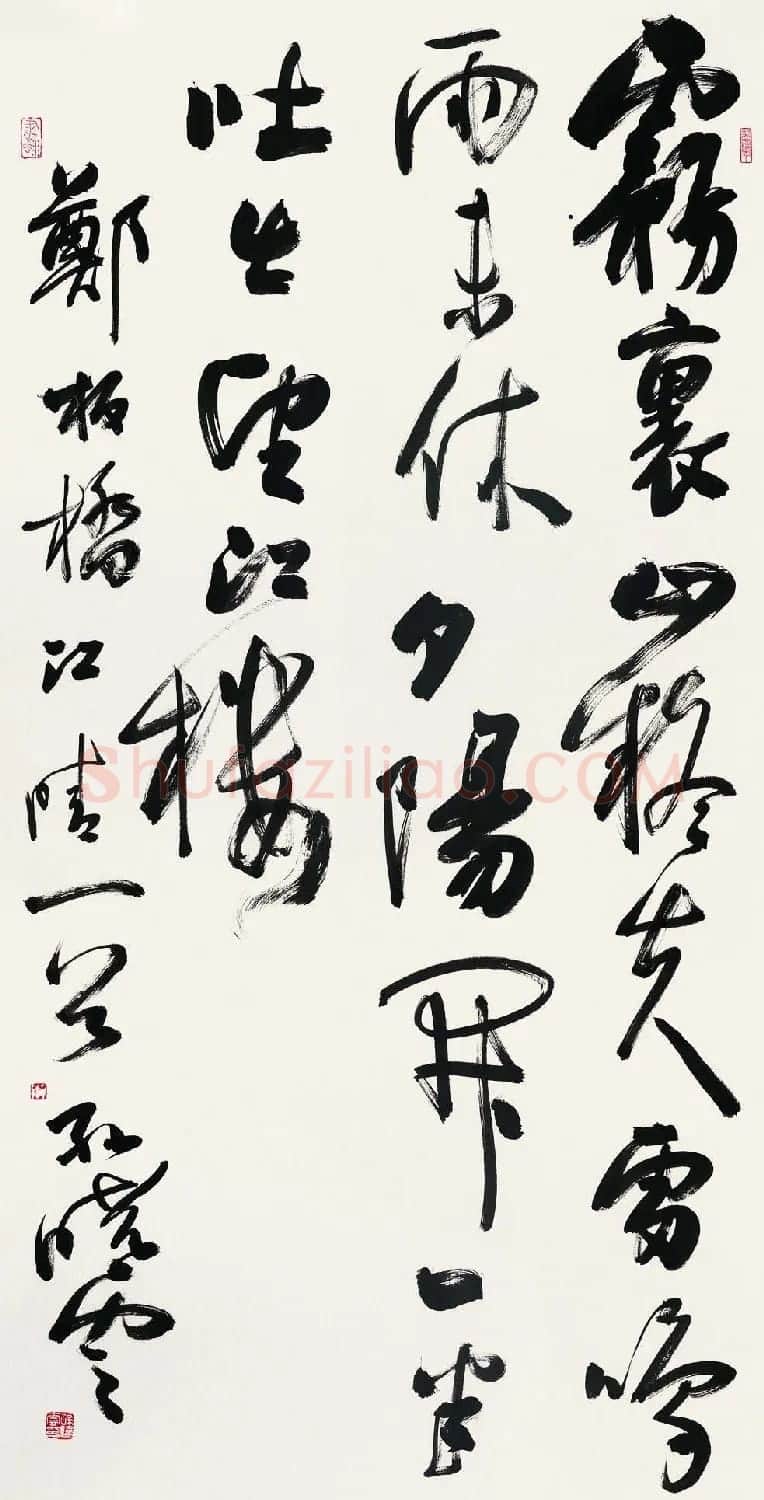 霧裏山疑失雷鳴
雨未休夕陽開一半
吐出望江樓
鄭板橋江晴一首 孫曉雲
Shufaziliao.COM